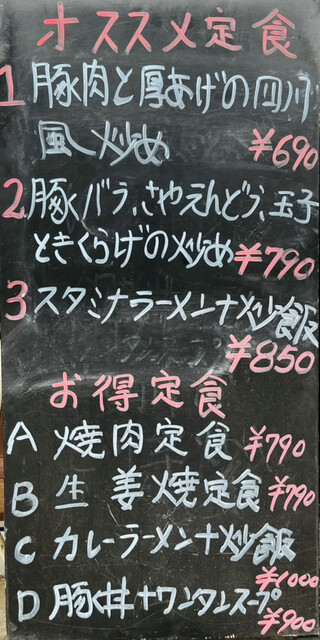 オススメ定食
1 豚肉と厚あげの四川
風炒め ¥690
2 豚バラ、さやえんどう、玉子
ときくらげの炒め ¥790
3 スタミナラーメン+炒飯
¥850
お得定食
A 焼肉定食 ¥790
B 生姜焼定食 ¥790
C カレーラーメン+炒飯
¥1000
D 豚丼+ワンタンスープ
¥900